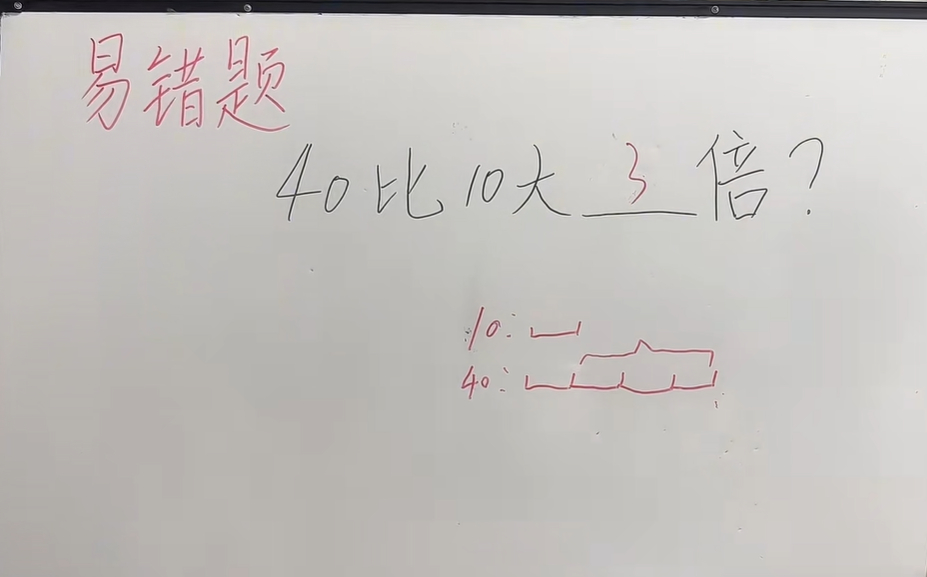 易错题
40比10大3倍?
10:
40: